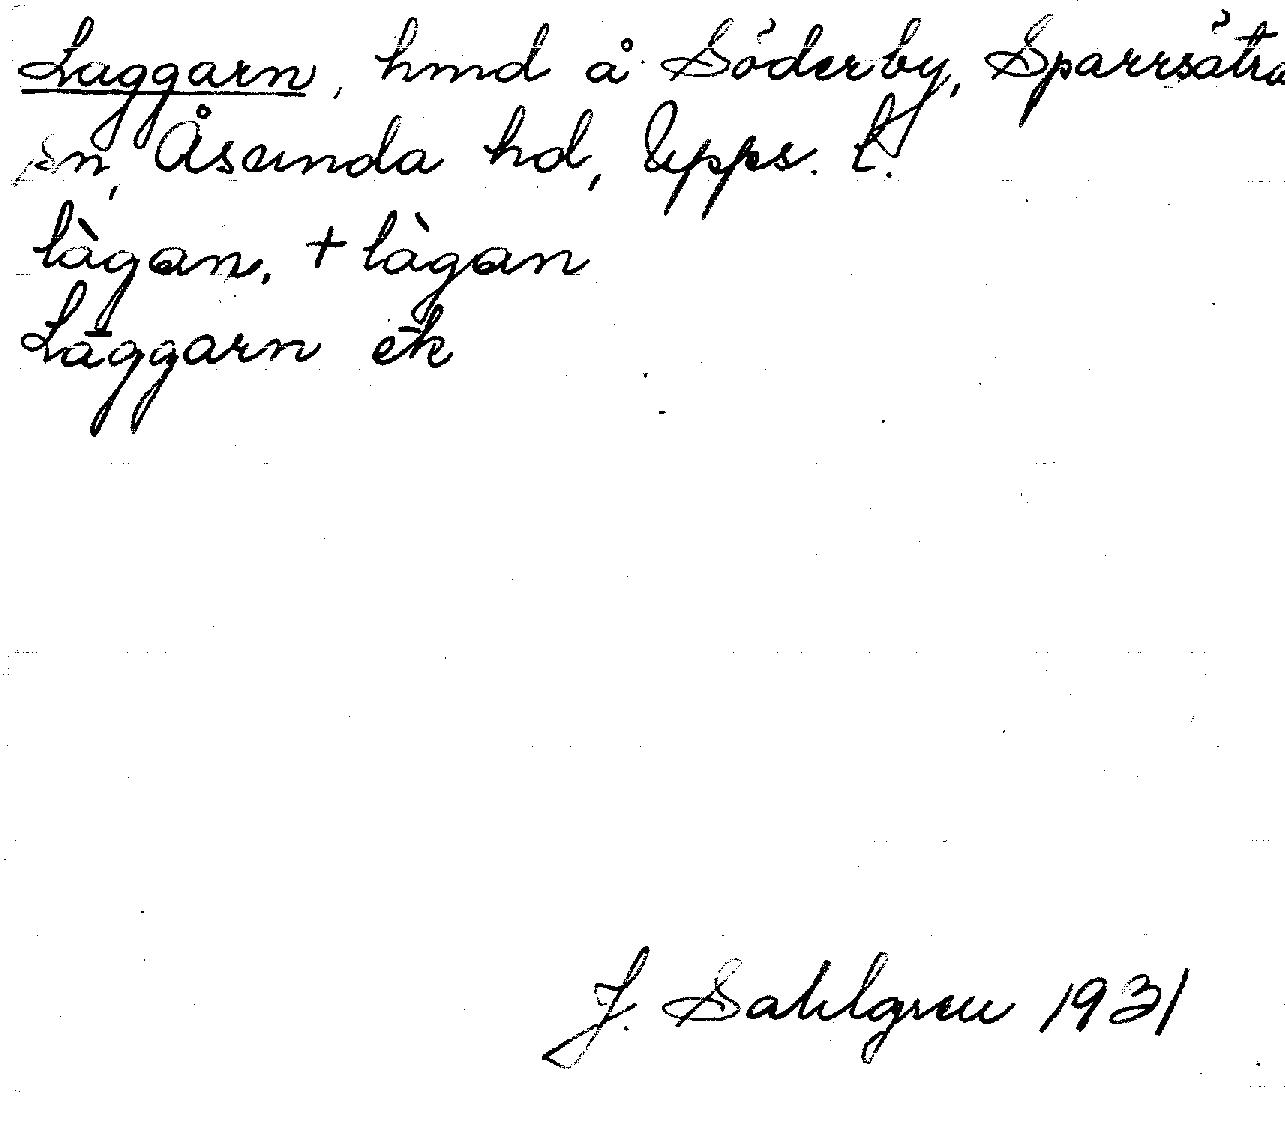 Laggarn, hmd å Söderby, Sparrsätra
sn, Åsunda hd, Upps. l.
làgan, + làgan
Lāggarn ek
J. Sahlgren 1931